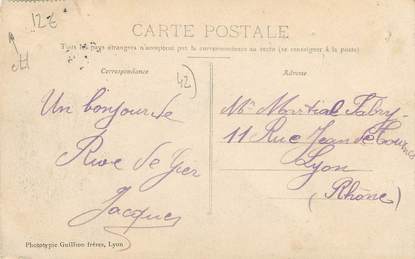 12€
CARTE POSTALE
Tous les pays étrangers n'acceptent pas la correspondance au recto (se renseigner à la poste)
Correspondance
Adresse
42
Un bonjour de
Rive de Gier
Jacques
Mr Martial Fabry
11 Rue Jean de Tournes
Lyon
(Rhône)
Phototypie Guillion frères, Lyon